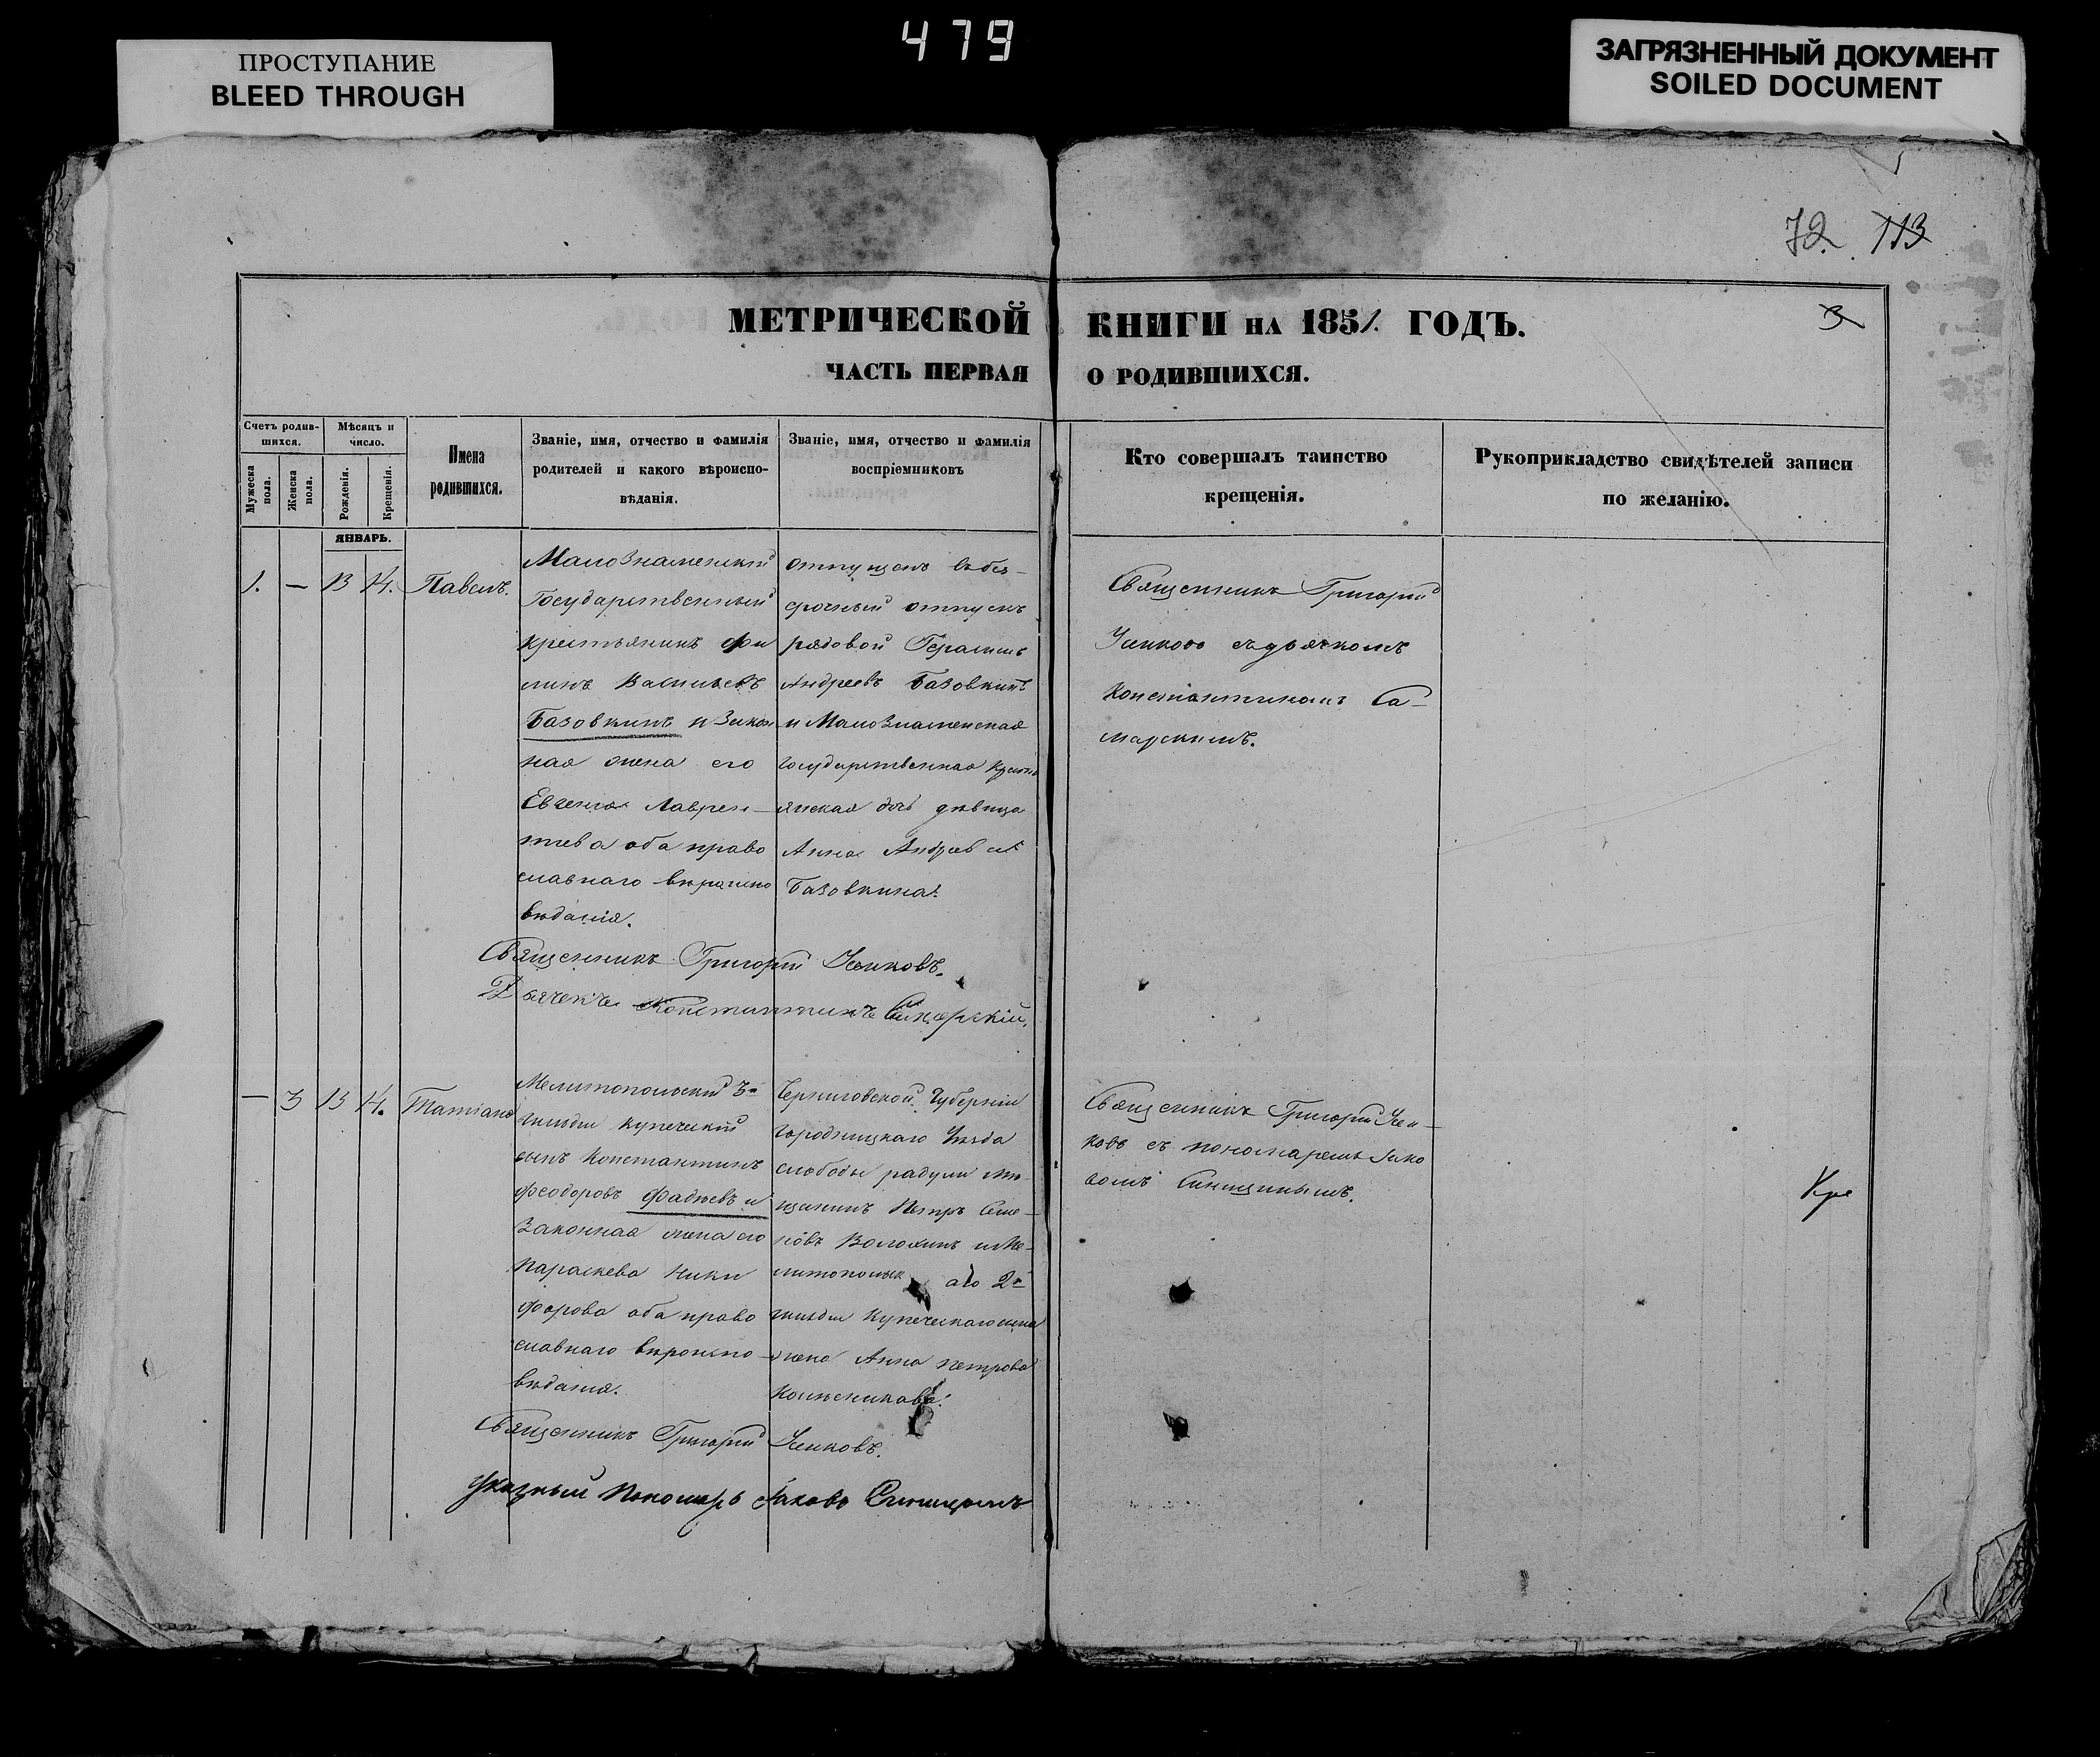 479
ПРОСТУПАНИЕ
BLEED THROUGH
ЗАГРЯЗНЕННЫЙ ДОКУМЕНТ
SOILED DOCUMENT
72. 113
3
МЕТРИЧЕСКОЙ КНИГИ НА 1851. ГОДЪ.
ЧАСТЬ ПЕРВАЯ О РОДИВШИХСЯ.
Счетъ родив-
шихся.
Мужеска пола.
Женска пола.
Мѣсяцъ и
число.
Рожденія.
Крещенія.
Имена
родившихся.
Званіе, имя, отчество и фамилія
родителей и какого вѣроиспо-
вѣданія.
Званіе, имя, отчество и фамилія
воспріемниковъ
Кто совершалъ таинство
крещенія.
Рукоприкладство свидѣтелей записи
по желанію.
ЯНВАРЬ.
1. — 13 14. Павелъ.
Малознаменскій
Государственный
крестьянинъ Фи
липъ Васильевъ
Базовкинъ и закон
ная жена его
Евгенія Лаврен—
тьева оба право
славнаго вѣроиспо
вѣданія.
отпущенъ въ без—
срочный отпускъ
рядовой Герасимъ
Андреевъ Базовкинъ
и Малознаменская
государственная крестья
янская дочь дѣвица
Анна Андреева
Базовкина.
Священникъ Григорій
съ дьячкомъ
Константиномъ Са—
марскимъ.
Священникъ Григорій
Дьячекъ Константинъ Самарскій.
— 3 13 14. Татіана
Мелитопольскій 3й
гильдіи купеческій
сынъ Константинъ
Феодоровъ Фадѣевъ и
законная жена его
Параскева Ники
форова оба право
славнаго вѣроиспо—
вѣданія.
Черниговской Губерніи
Городницкаго Уѣзда
слободы Радули мѣ—
щанинъ Петръ Семе—
новъ Волохинъ и Ме—
литопольск аго 2й
гильдіи купеческаго сына
жена Анна Петрова
Колѣсникова.
Священникъ Григорій
ковъ съ пономаремъ Іако
вомъ Синицынымъ.
Священникъ Григорій
Указный Пономарь Іаковъ Синицынъ